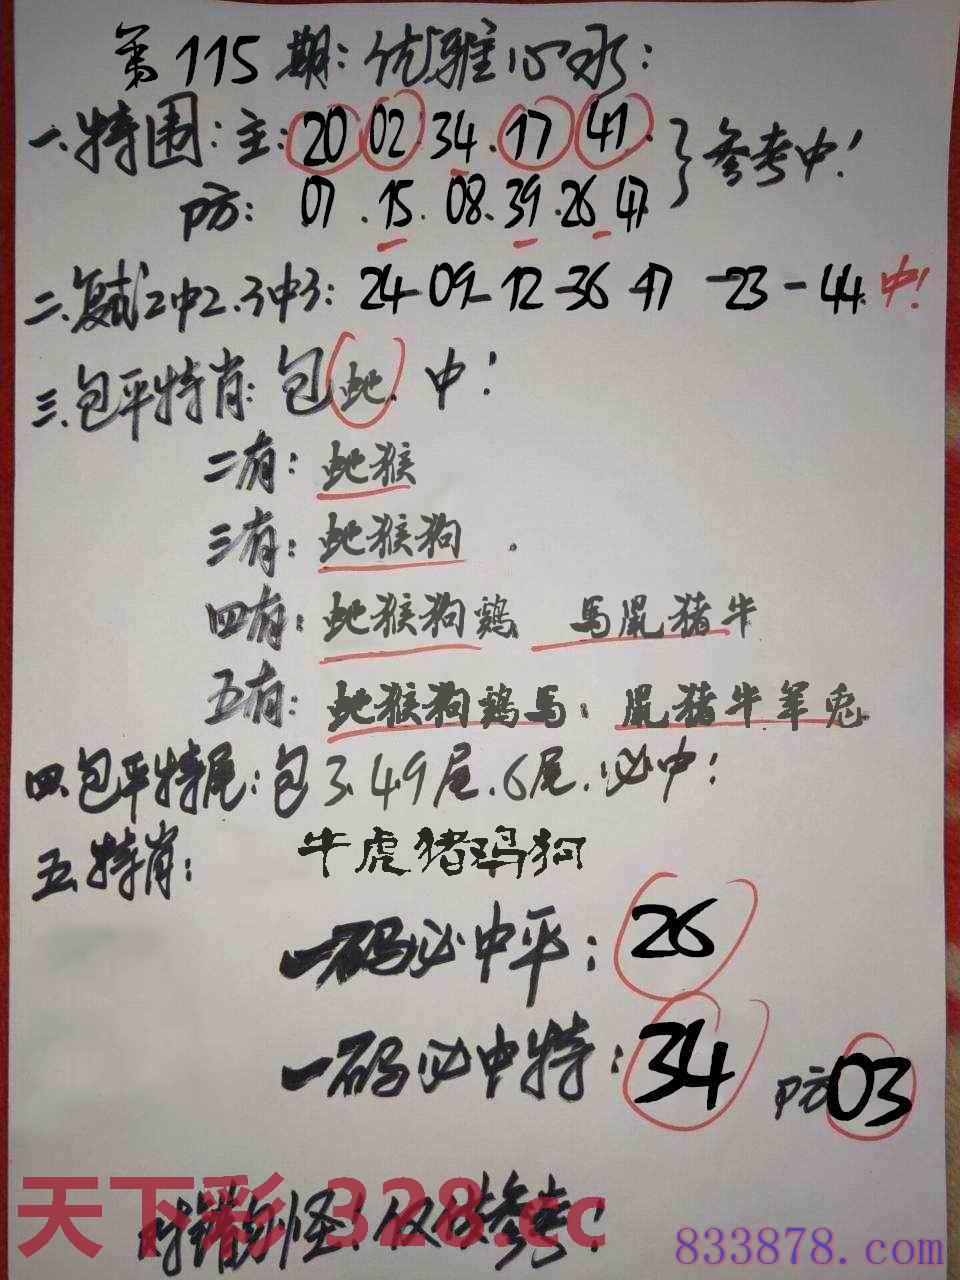 第115期:优雅心水:
一.特围:主:20 02 34.17 41. 参考中!
防: 07.15.08.39.26 47
二.复式2中2.3中3: 24-09-12-36-17-23-44 中!
三.包平特肖:包蛇.中!
二有:蛇猴
三有:蛇猴狗.
四有:蛇猴狗鶏 馬鼠猪牛
五有:蛇猴狗鶏馬:鼠猪牛羊兎
四.包平特尾:包3.4.9尾.6尾.必中:
五.特肖: 牛虎猪鸡狗
一码必中平: 26
一码必中特: 34 防03
对错勿怪!仅供参考!
天下彩 328.cc
833878.com